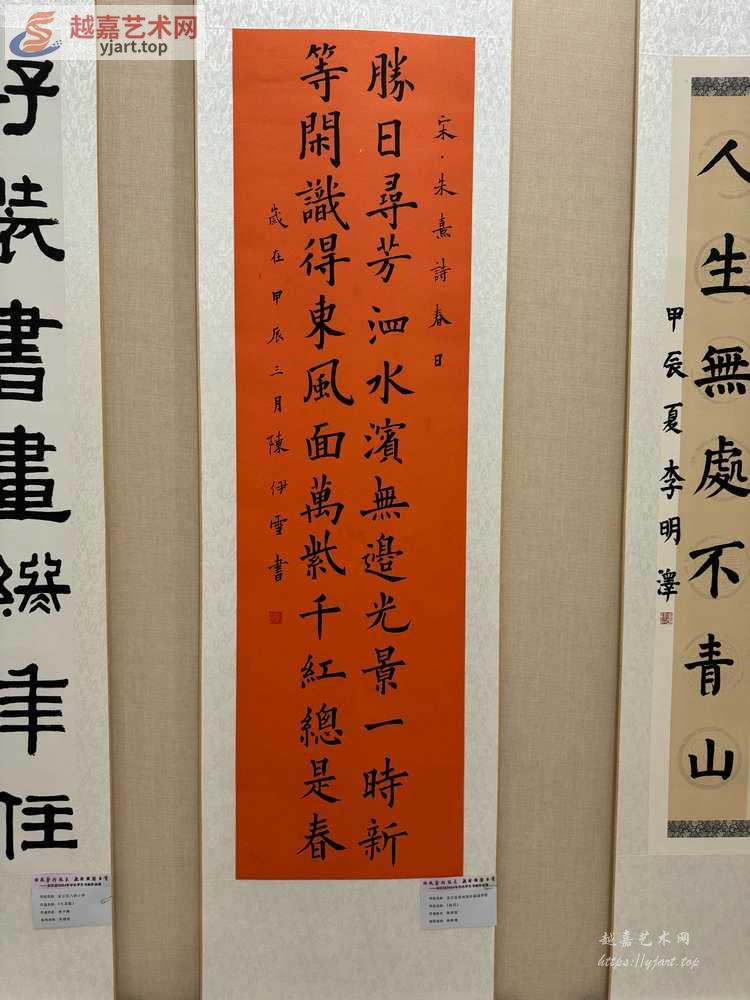 越嘉艺术网
yjart.top
宋·朱熹詩春日
勝日尋芳泗水濱無邊光景一時新
等閑識得東風面萬紫千紅總是春
歲在甲辰三月陳伊雪書
人生無處不青山
甲辰夏李明澤
裝書畫
年佳
越嘉艺术网
https://yjart.top